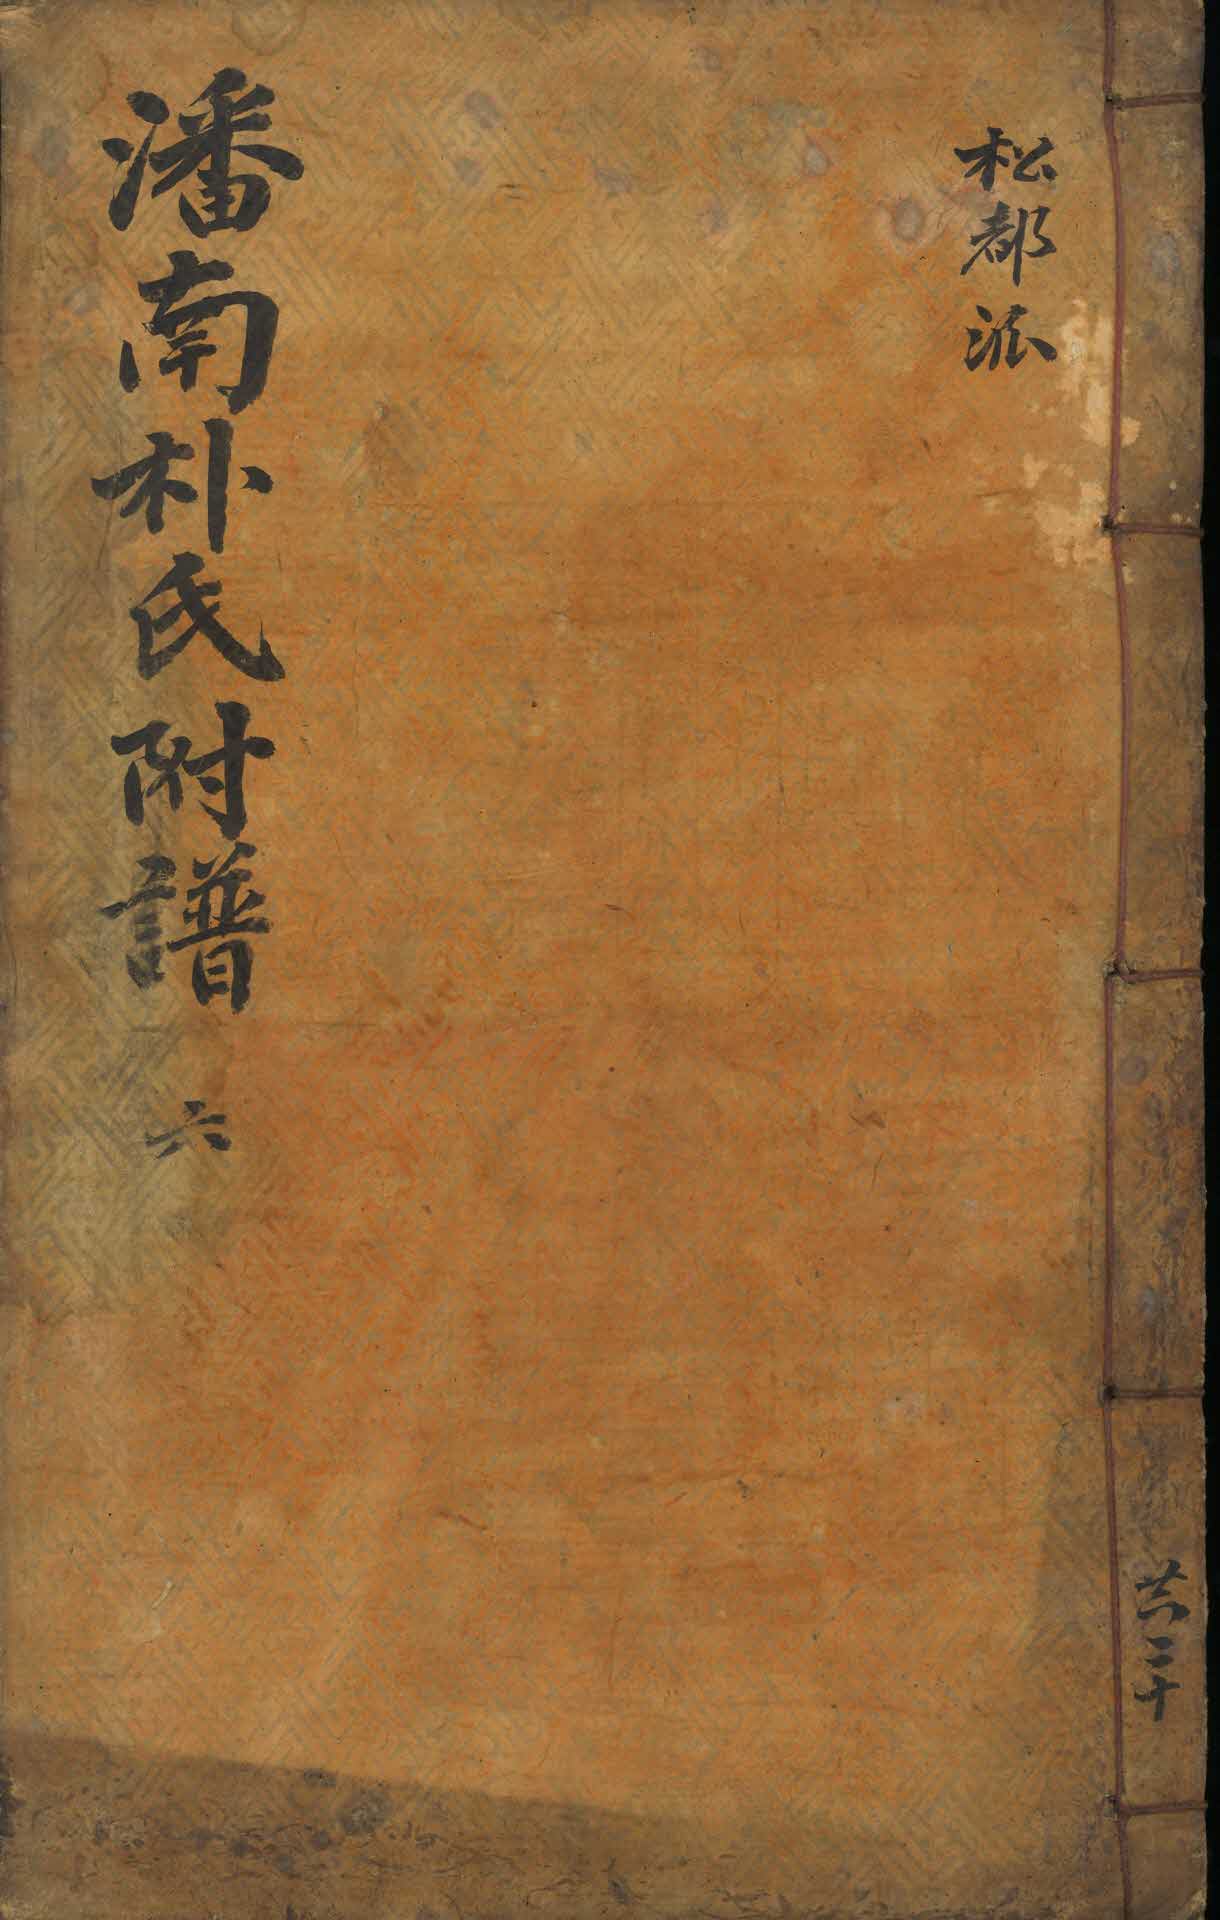 松都派
潘南朴氏附譜 六
共二十